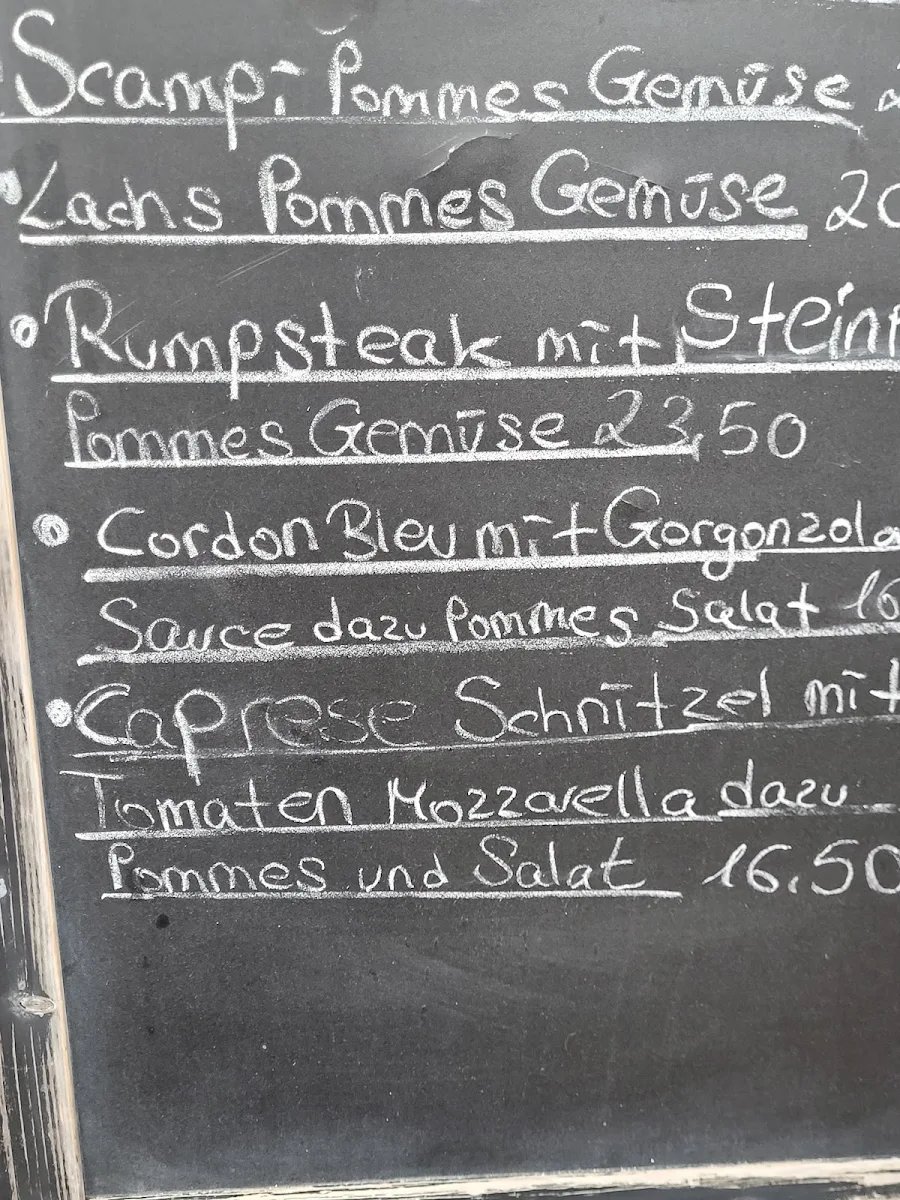 Scampi Pommes Gemüse 2
Lachs Pommes Gemüse 20
Rumpsteak mit Stein
Pommes Gemüse 23,50
Cordon Bleu mit Gorgonzola
Sauce dazu Pommes Salat 16
Caprese Schnitzel mit
Tomaten Mozzarella dazu
Pommes und Salat 16.50